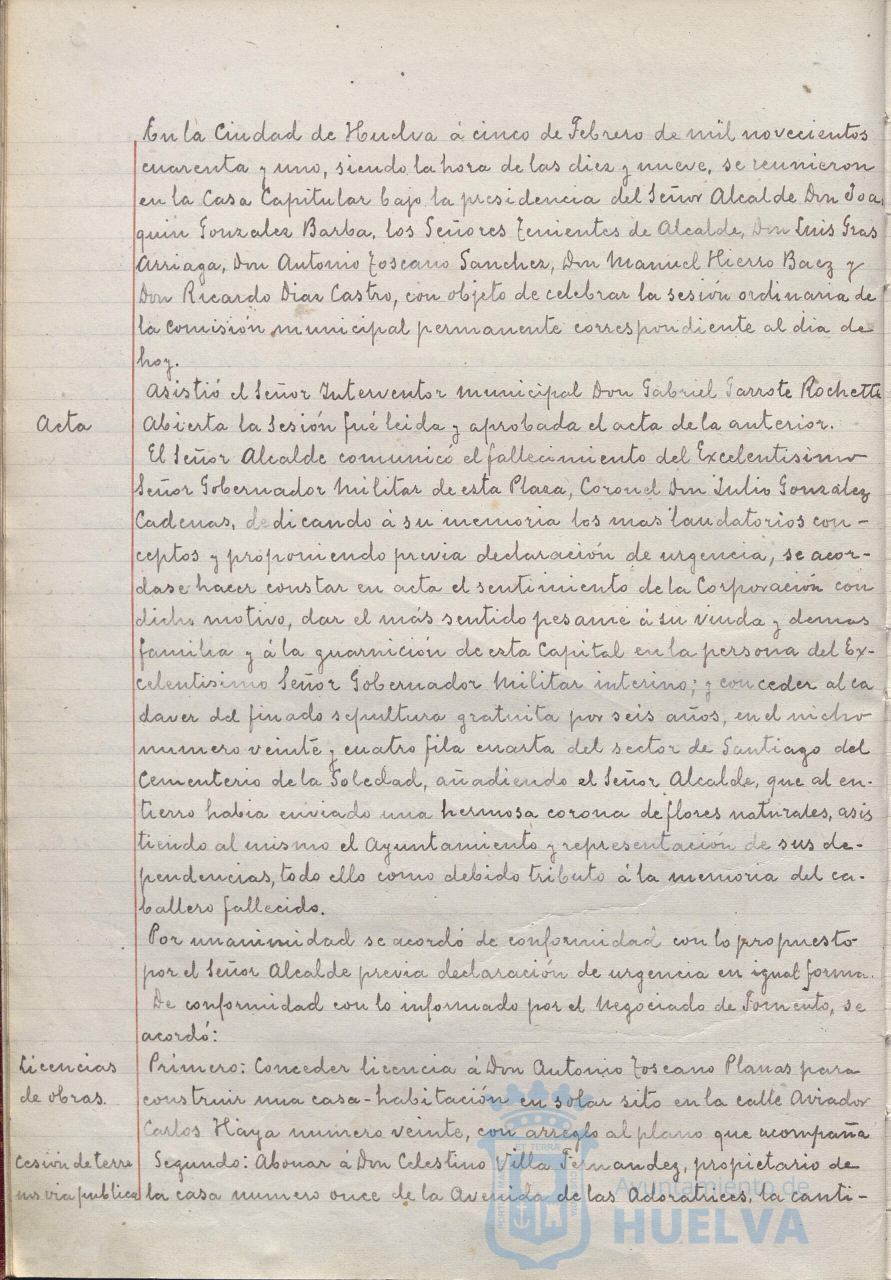 En la Ciudad de Huelva á cinco de Febrero de mil novecientos
cuarenta y uno, siendo la hora de las diez y nueve, se reunieron
en la Casa Capitular bajo la presidencia del Señor Alcalde Don Joa,
quin Gonzalez Barba, los Señores Tenientes de Alcalde, Don Luis Gras
Arriaga, Don Antonio Toscano Sanchez, Don Manuel Hierro Baez y
Don Ricardo Diaz Castro, con objeto de celebrar la sesión ordinaria de
la comisión municipal permanente correspondiente al dia de
hoy.
Asistió el Señor Interventor municipal Don Gabriel Garrote Rochette
Acta
Abierta la Sesión fué leida y aprobada el acta de la anterior.
El Señor Alcalde comunicó el fallecimiento del Excelentisimo
Señor Gobernador Militar de esta Plaza, Coronel Don Julio González
Cadenas, dedicando á su memoria los mas laudatorios con-
ceptos y proponiendo previa declaración de urgencia, se acor-
dase hacer constar en acta el sentimiento de la Corporación con
dicho motivo, dar el más sentido pesame á su viuda y demas
familia y á la guarnición de esta Capital en la persona del Ex-
celentisimo Señor Gobernador Militar interino; y conceder al ca
daver del finado sepultura gratuita por seis años, en el nicho
numero veinte y cuatro fila cuarta del sector de Santiago del
Cementerio de la Soledad, añadiendo el Señor Alcalde, que al en-
tierro habia enviado una hermosa corona de flores naturales, asis
tiendo al mismo el Ayuntamiento y representación de sus de-
pendencias, todo ello como debido tributo á la memoria del ca-
ballero fallecido.
Por unanimidad se acordó de conformidad con lo propuesto
por el Señor Alcalde previa declaración de urgencia en igual forma.
De conformidad con lo informado por el Negociado de Fomento, se
acordó:
Licencias
de obras.
Primero: Conceder licencia á Don Antonio Toscano Planas para
construir una casa-habitación en solar sito en la calle Aviador
Carlos Haya numero veinte, con arreglo al plano que acompaña
Cesión de terre
nos via publica
Segundo: Abonar á Don Celestino Villa Fernandez, propietario de
la casa numero once de la Avenida de las Adoratrices, la canti-
Ayuntamiento de
HUELVA